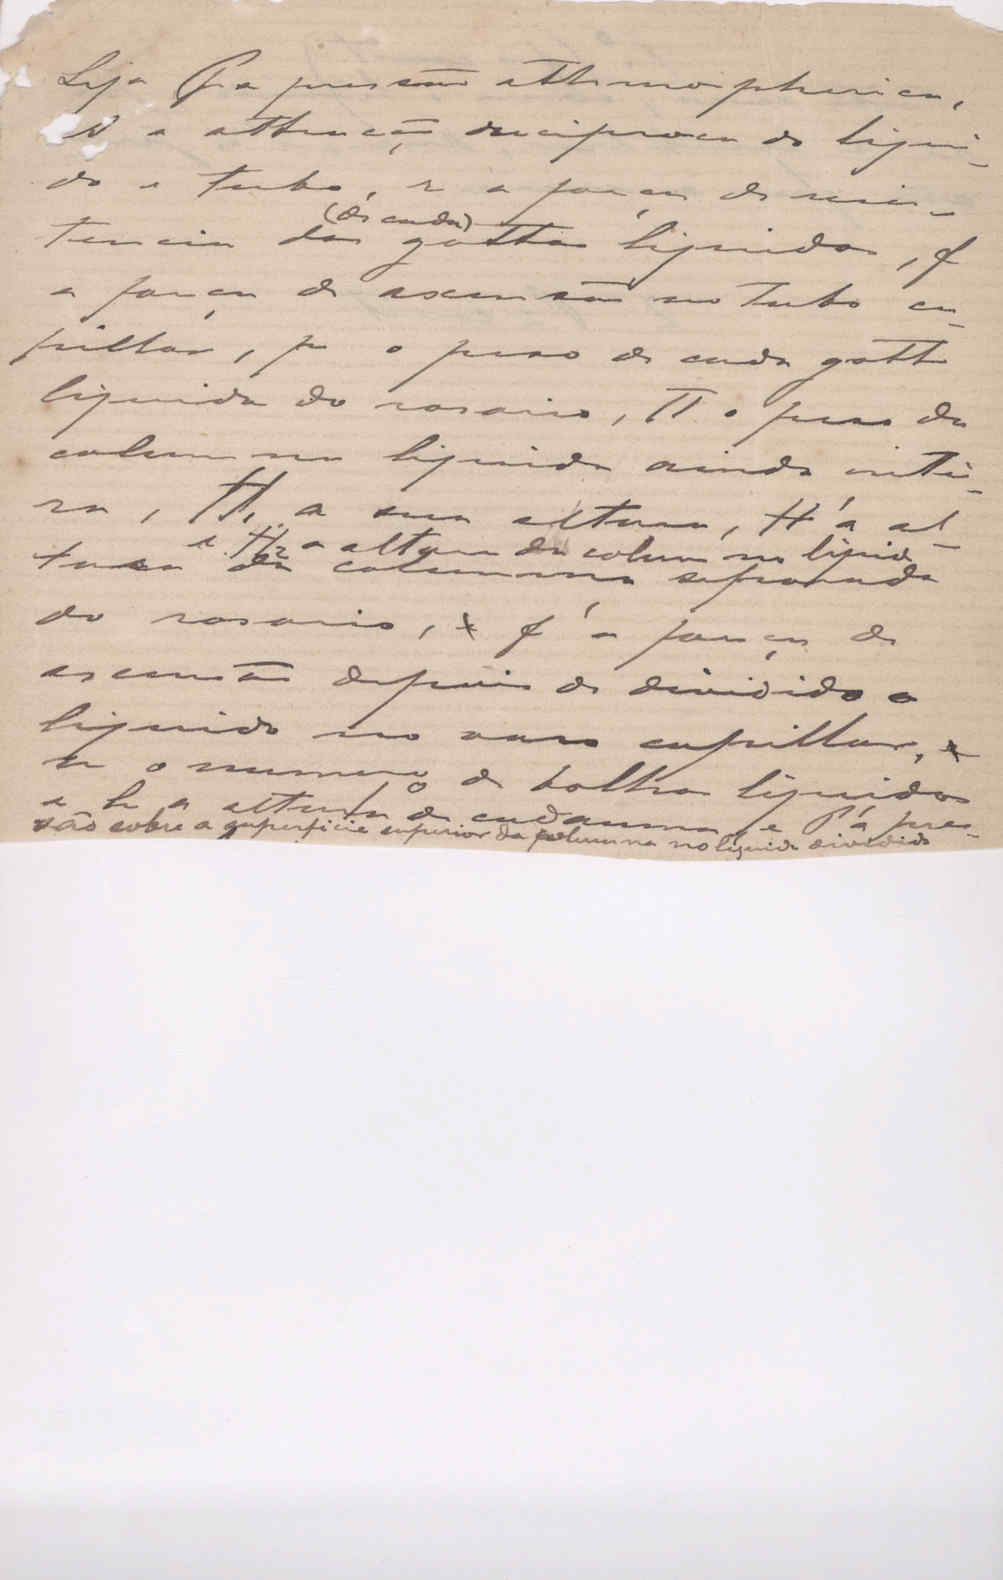 Seja P a pressão atthmospherica,
N a attracção reciproca do liqui-
do e tubo, r a força de resis-
tencia das (de cada) gottas liquidas, f
a força de ascensão no tubo ca-
pillar, p o peso de cada gotta
liquida do rosario, Π o peso da
columna liquida ainda intei-
ra, H, a sua altura, H' a al-
e H2 a altura da columna liquida
tura da columna separada
do rosario, f' a força de
ascensão depois de dividido o
liquido no vaso capillar,
n o numero de bolhas liquidas
e h a altura de cada uma, e P' a pres-
são sobre a superficie superior da columna no liquido dividido